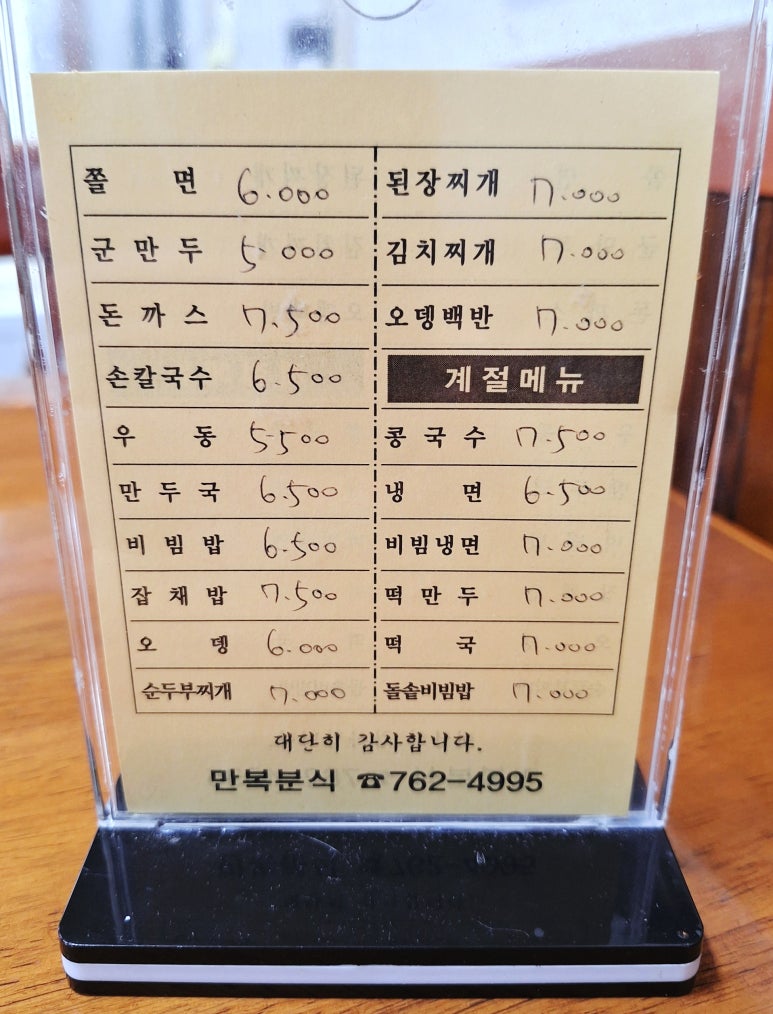 쫄 면 6.000
군 만 두 5.000
돈 까 스 7.500
손칼국수 6.500
우 동 5.500
만 두 국 6.500
비 빔 밥 6.500
잡 채 밥 7.500
오 뎅 6.000
순두부찌개 7.000
된장찌개 7.000
김치찌개 7.000
오뎅백반 7.000
계절메뉴
콩 국 수 7.500
냉 면 6.500
비빔냉면 7.000
떡 만 두 7.000
떡 국 7.000
돌솥비빔밥 7.000
대단히 감사합니다.
만복분식 ☎762-4995